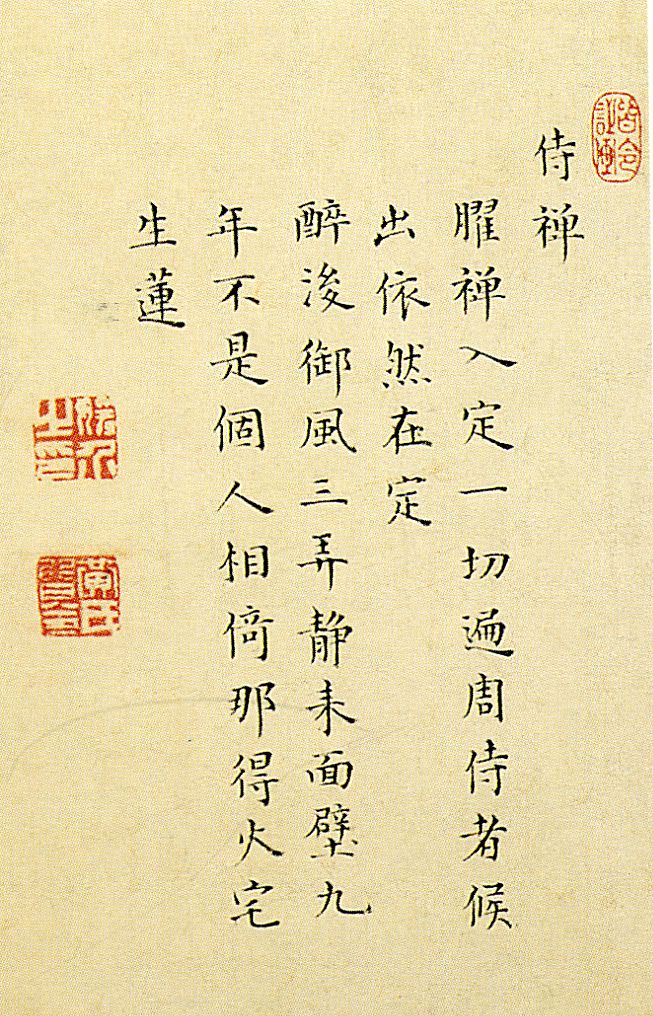 皆令
侍禅
臞禅入定一切遍周侍者候
出依然在定
醉後御風三弄静来面壁九
年不是個人相倚那得火宅
生蓮
黄氏皆令